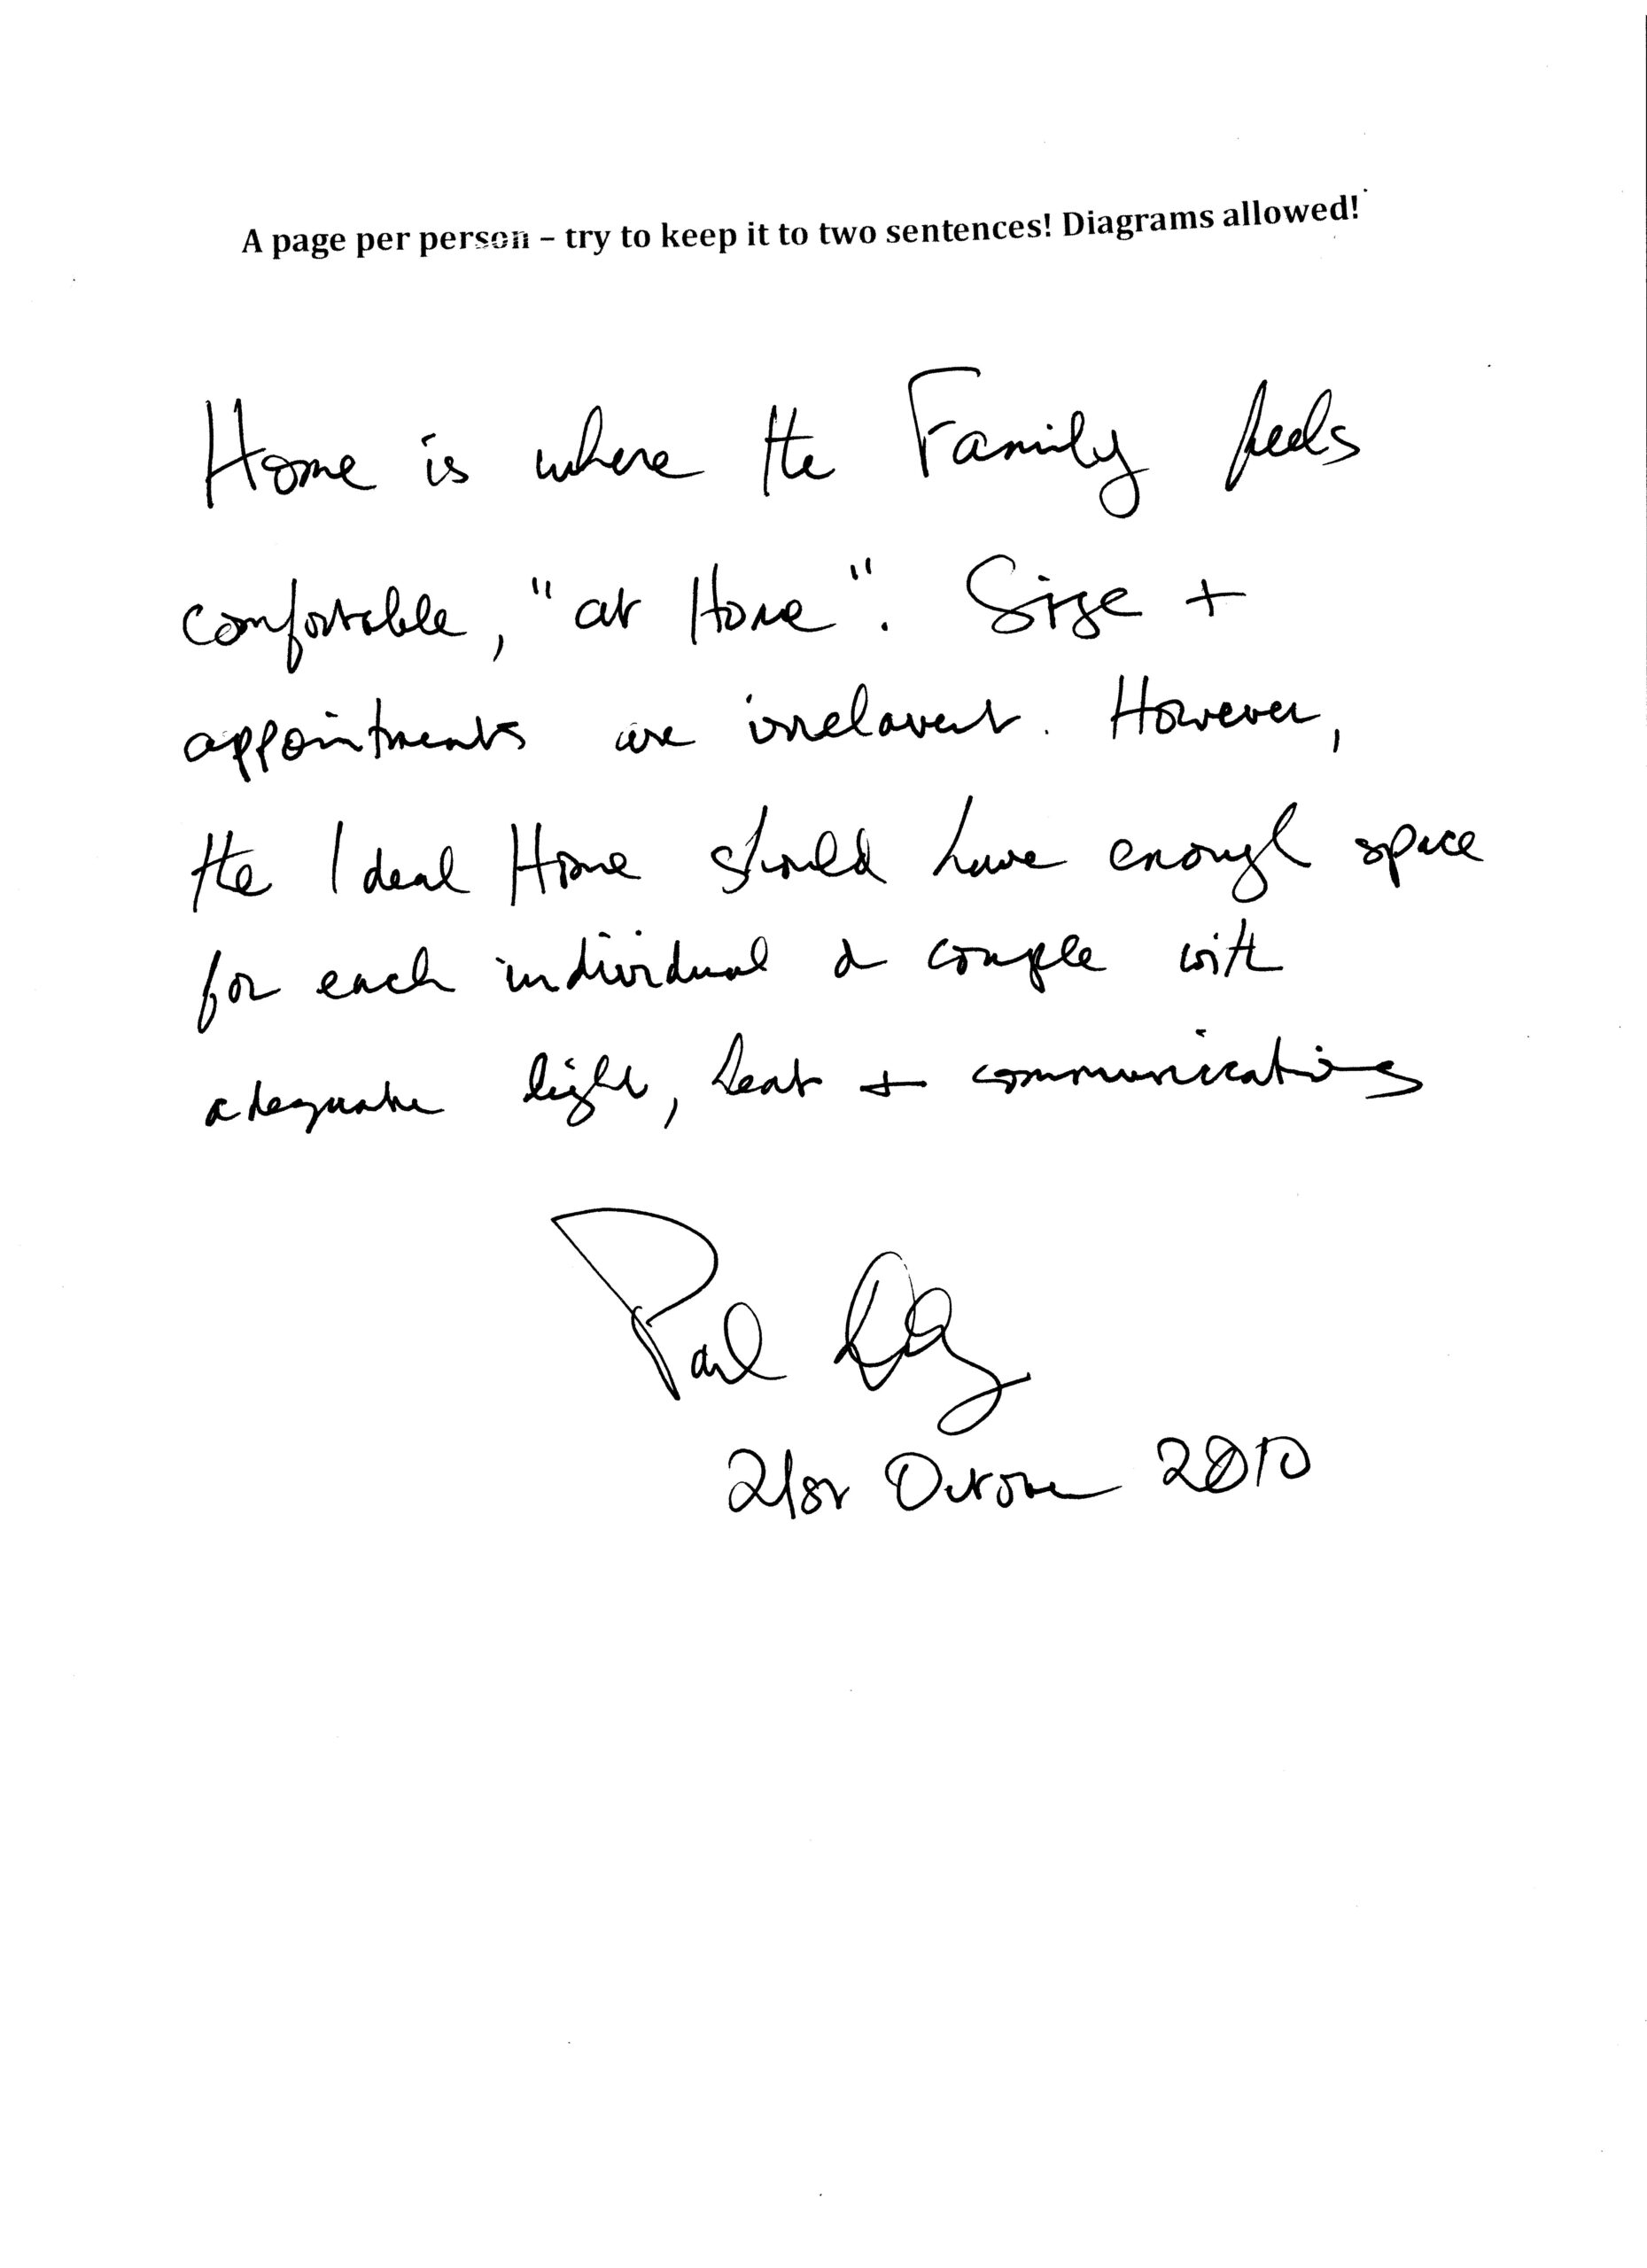 A page per person – try to keep it to two sentences! Diagrams allowed!
Home is where the Family feels
comfortable, "at Home". Size +
appointments are irrelavent. However,
the Ideal Home should have enough space
for each individual & couple with
adequate light, heat + communications
Paul
21st October 2010